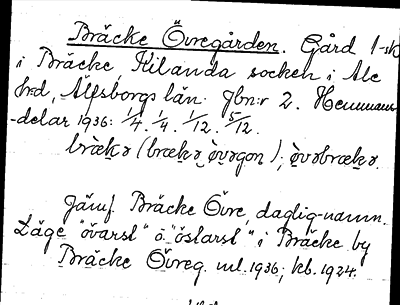 Bräcke Övregården. Gård 1-sk
i Bräcke, Kilanda socken i Ale
hrd, Älfsborgs län. Jbn:r 2. Hemmans-
-delar 1936: 1/4. 1/4. 1/12. 5/12.
bræ̀kə (bræ̀kə ò̤vrgoṇ); ò̤vrəbrækə.
Jämf. Bräcke Övre, daglig-namn.
Läge "övarst" o. "östarst" i Bräcke by
Bräcke Övreg. ml. 1936; kb. 1924.